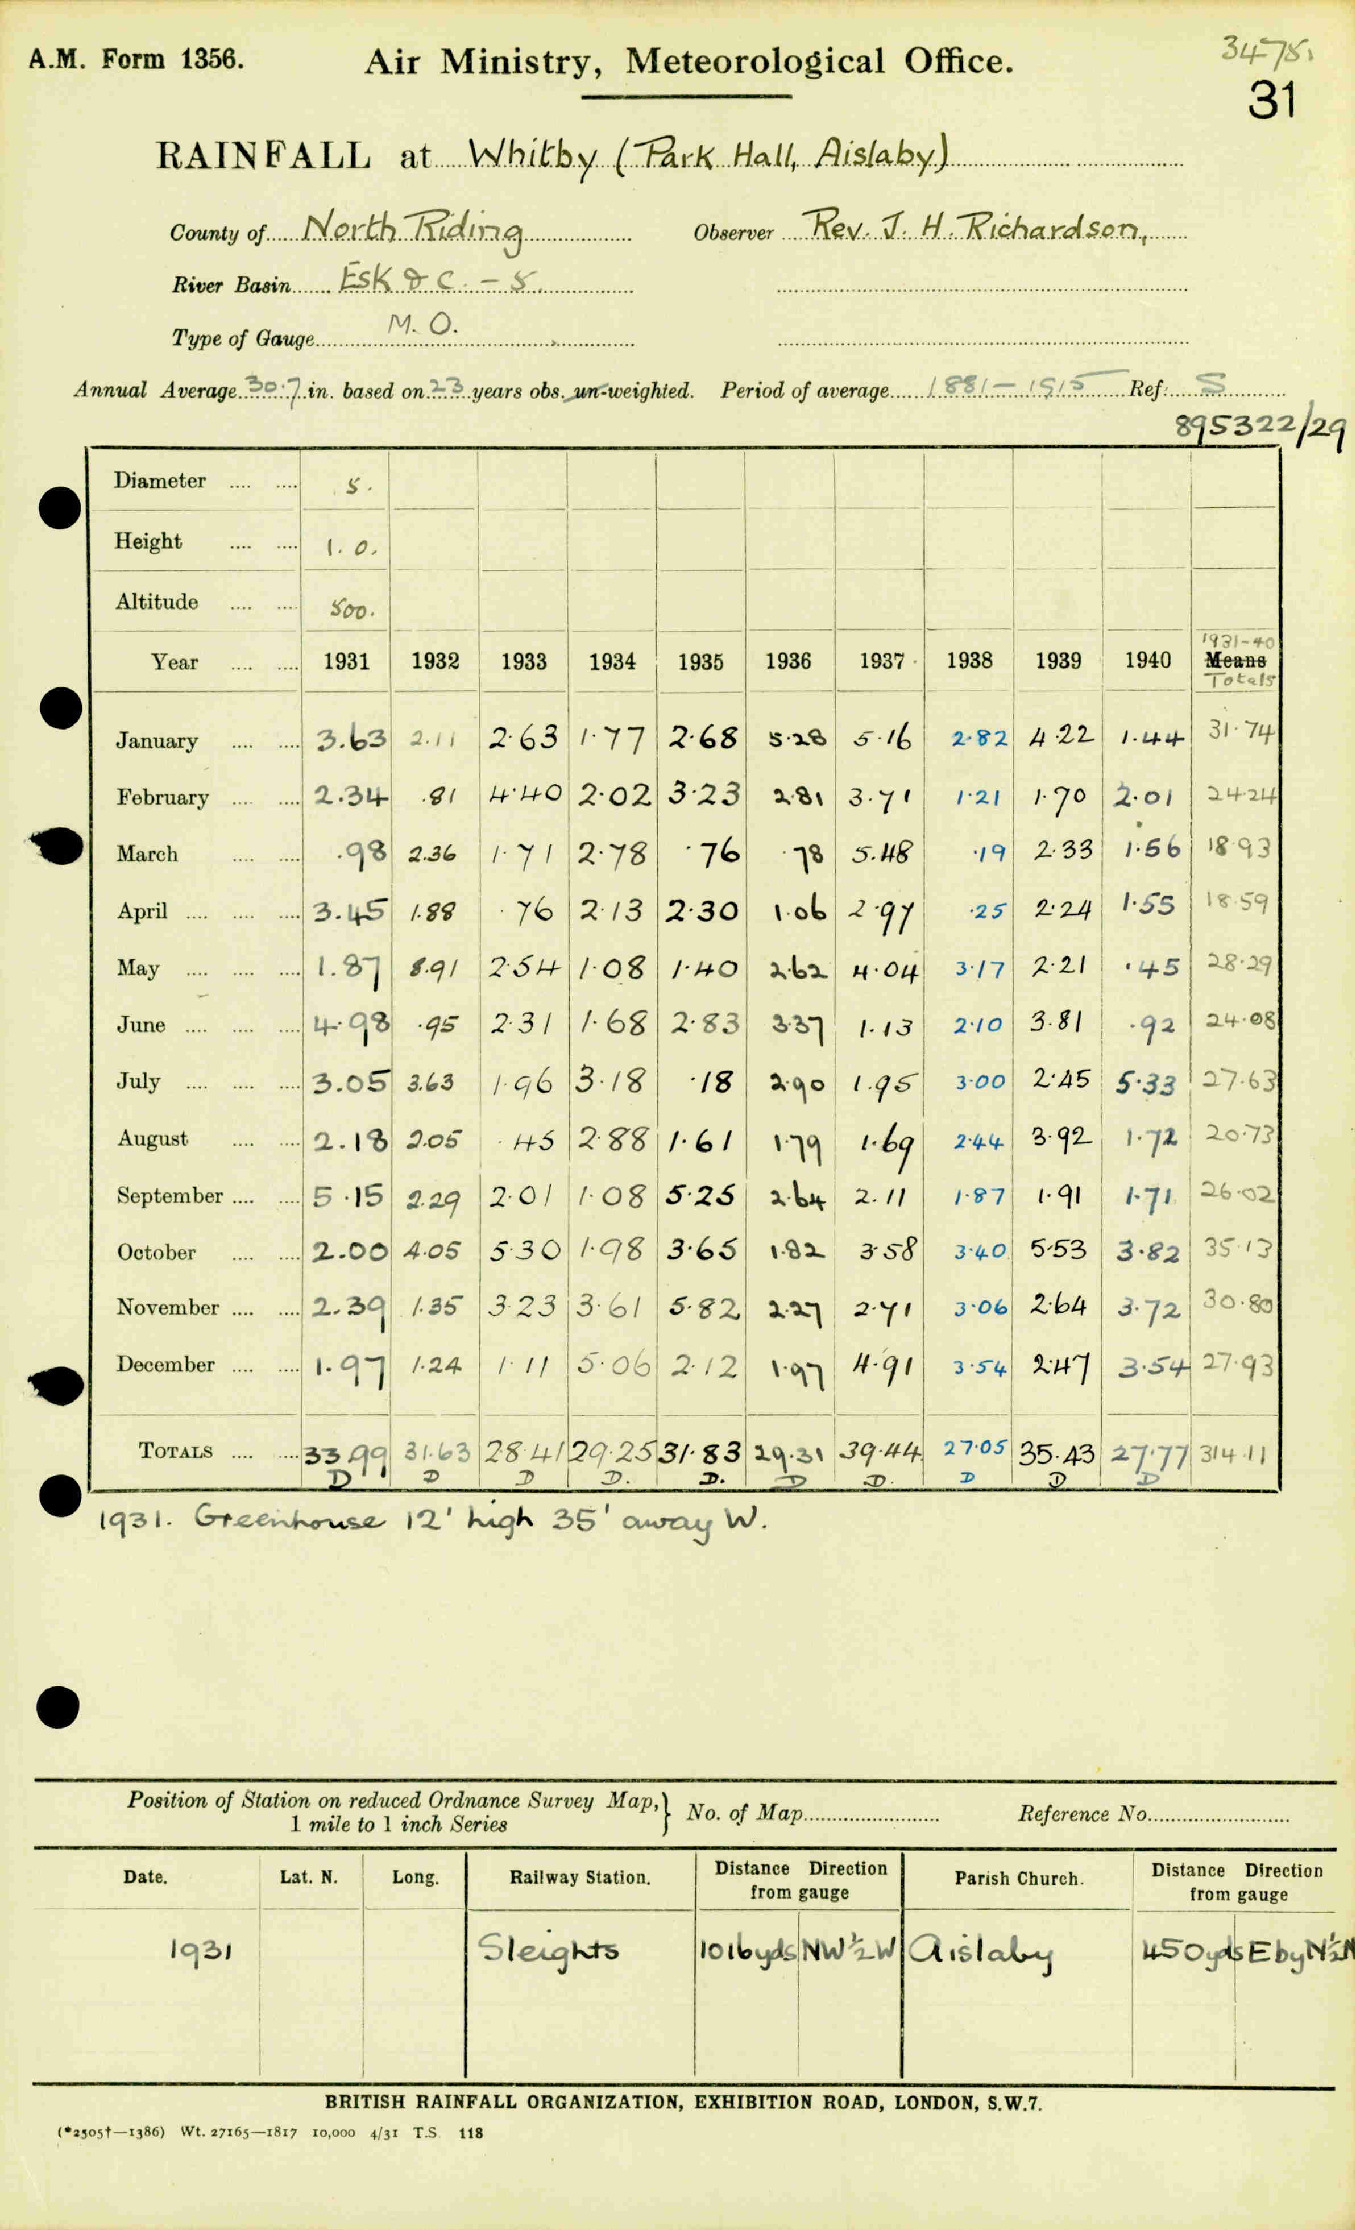 A.M. Form 1356. Air Ministry, Meteorological Office. 3475.
31
RAINFALL at Whitby (Park Hall, Aislaby)
County of North Riding Observer Rev. J. H. Richardson,
River Basin Esk & c. - 5.
Type of Gauge M. O.
Annual Average 30.7 in. based on 23 years obs. un-weighted. Period of average 1881-1915 Ref: S
895322/29
Diameter 5.
Height 1. 0.
Altitude 500.
1931-40
Year 1931 1932 1933 1934 1935 1936 1937 1938 1939 1940 Means
Totals
January 3.63 2.11 2.63 1.77 2.68 5.28 5.16 2.82 4.22 1.44 31.74
February 2.34 .81 4.40 2.02 3.23 2.81 3.71 1.21 1.70 2.01 24.24
March .98 2.36 1.71 2.78 .76 .78 5.48 .19 2.33 1.56 18.93
April 3.45 1.88 .76 2.13 2.30 1.06 2.97 .25 2.24 1.55 18.59
May 1.87 8.91 2.54 1.08 1.40 2.62 4.04 3.17 2.21 .45 28.29
June 4.98 .95 2.31 1.68 2.83 3.37 1.13 2.10 3.81 .92 24.08
July 3.05 3.63 1.96 3.18 .18 2.90 1.95 3.00 2.45 5.33 27.63
August 2.18 2.05 .45 2.88 1.61 1.79 1.69 2.44 3.92 1.72 20.73
September 5.15 2.29 2.01 1.08 5.25 2.64 2.11 1.87 1.91 1.71 26.02
October 2.00 4.05 5.30 1.98 3.65 1.82 3.58 3.40 5.53 3.82 35.13
November 2.39 1.35 3.23 3.61 5.82 2.27 2.71 3.06 2.64 3.72 30.80
December 1.97 1.24 1.11 5.06 2.12 1.97 4.91 3.54 2.47 3.54 27.93
TOTALS 33.99 31.63 28.41 29.25 31.83 29.31 39.44 27.05 35.43 27.77 314.11
D D D D. D. D D. D D D
1931. Greenhouse 12' high 35' away W.
Position of Station on reduced Ordnance Survey Map, } No. of Map Reference No.
1 mile to 1 inch Series
Date. Lat. N. Long. Railway Station. Distance Direction from gauge Parish Church. Distance Direction from gauge
1931 Sleights 1016yds NW½W Aislaby 450yds EbyN½N
BRITISH RAINFALL ORGANIZATION, EXHIBITION ROAD, LONDON, S.W.7.
(*2505†—1386) Wt. 27165—1817 10,000 4/31 T.S. 118